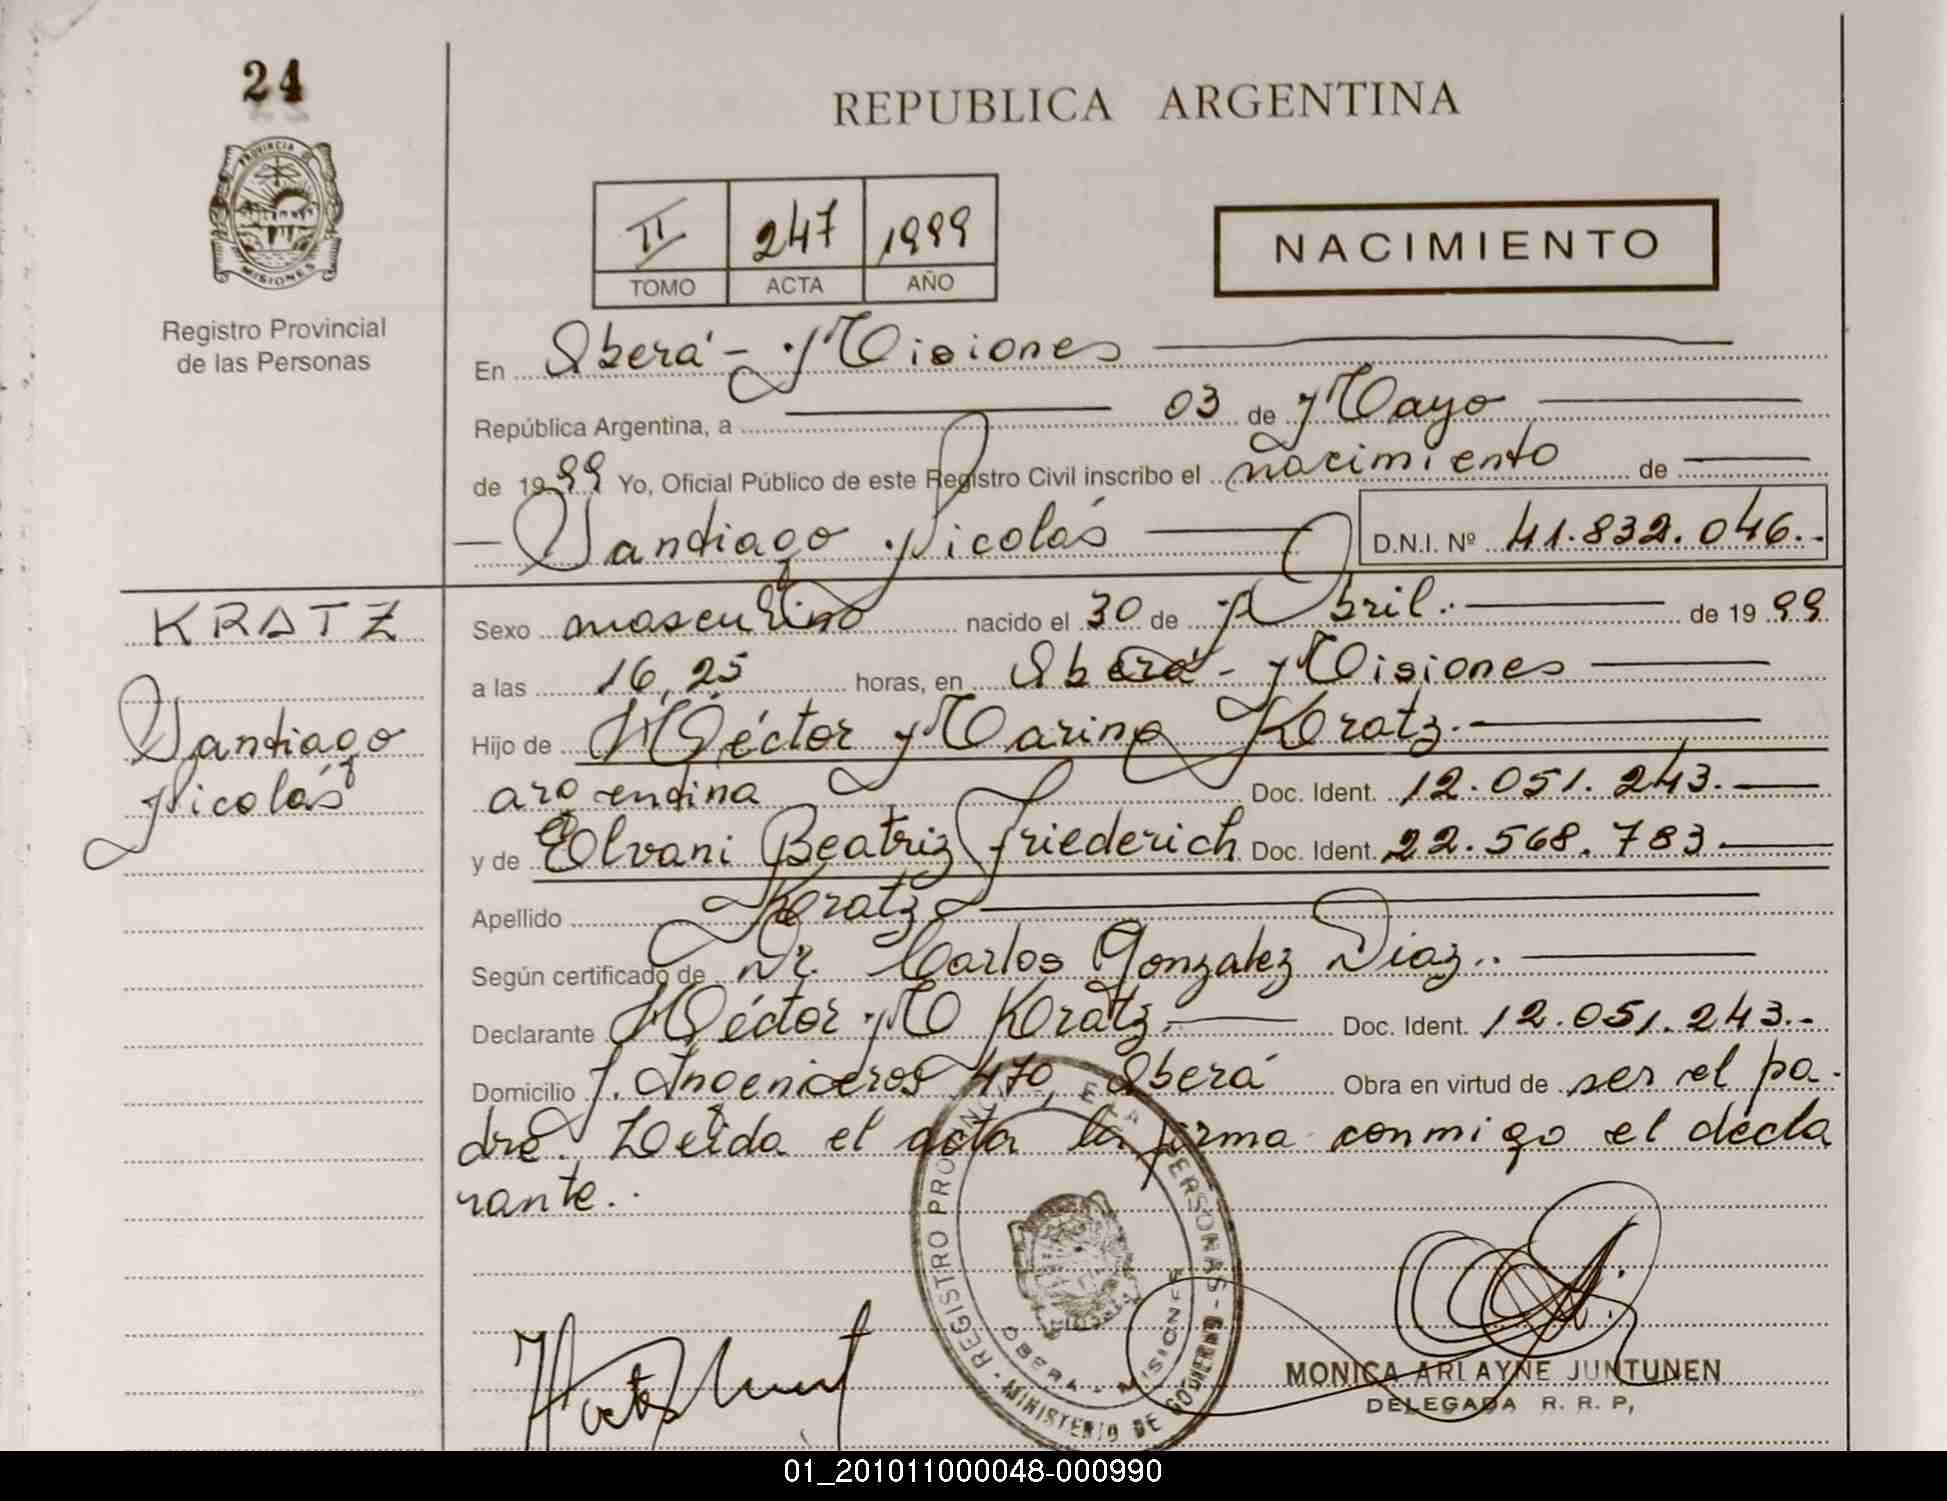 24
PROVINCIA DE
MISIONES
Registro Provincial
de las Personas
REPUBLICA ARGENTINA
II 247 1999
TOMO ACTA AÑO
NACIMIENTO
En Oberá - Misiones
República Argentina, a 03 de Mayo
de 1999 Yo, Oficial Público de este Registro Civil inscribo el nacimiento de
Santiago Nicolás D.N.I. Nº 41.832.046.-
KRATZ
Santiago
Nicolás
Sexo masculino nacido el 30 de Abril.- de 1999
a las 16,25 horas, en Oberá - Misiones
Hijo de Héctor Marino Kratz.
argentina Doc. Ident. 12.051.243.
y de Elvani Beatriz Friederich Doc. Ident. 22.568.783.
Apellido Kratz
Según certificado de Dr. Carlos Gonzalez Diaz..
Declarante Héctor M Kratz. Doc. Ident. 12.051.243.-
Domicilio J. Ingenieros 470, Oberá Obra en virtud de ser el pa-
dre. Leida el acta la firma conmigo el decla
rante..
REGISTRO PROVINCIAL DE LAS PERSONAS - MINISTERIO DE GOBIERNO
OBERA - MISIONES
MONICA ARLAYNE JUNTUNEN
DELEGADA R. R. P,
01_201011000048-000990